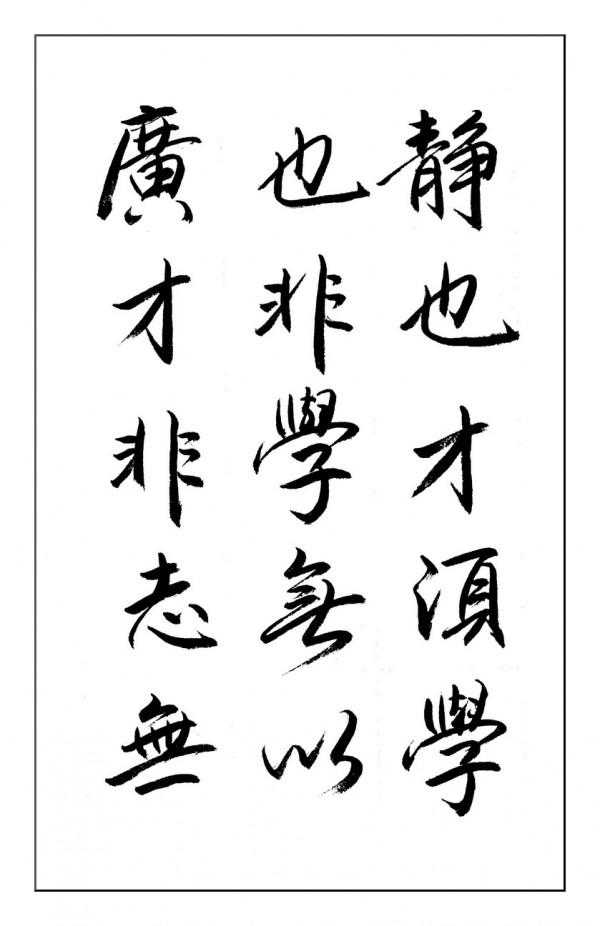 静也才須學
也非學無以
廣才非志無